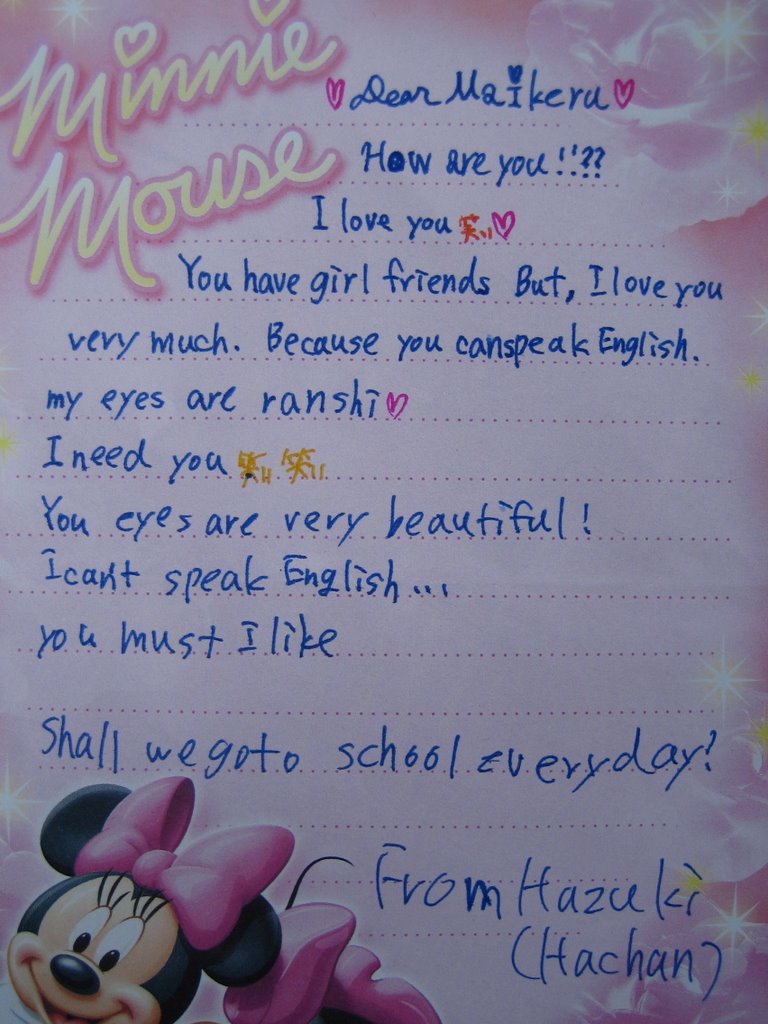 Minnie
Mouse
Dear Maikeru
How are you!!??
I love you 笑
You have girl friends But, I love you
very much. Because you canspeak English.
my eyes are ranshi
I need you 笑 笑
You eyes are very beautiful!
I can't speak English...
you must I like
Shall we goto school everyday?
From Hazuki
(Hachan)